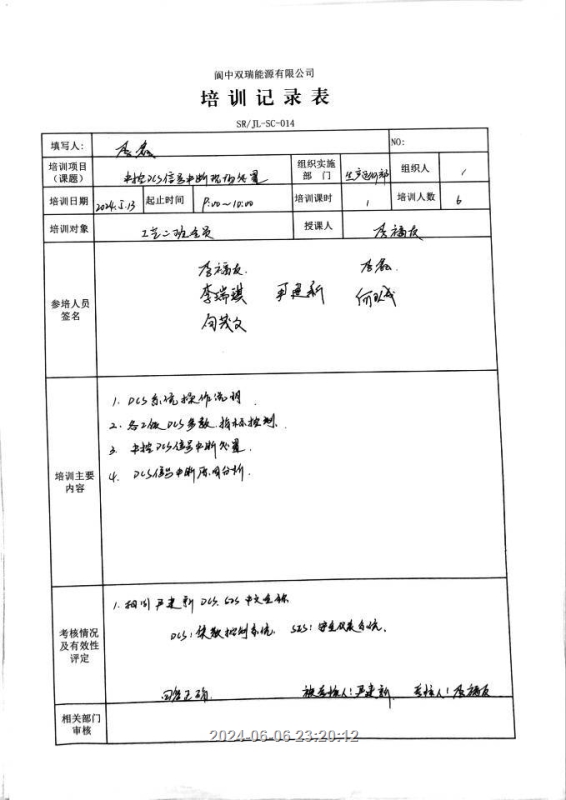 阆中双瑞能源有限公司
培训记录表
SR/JL-SC-014
填写人: 李磊 NO:
培训项目（课题） 中控DCS信号中断现场处置 组织实施部门 生产运行部 组织人 /
培训日期 2024.5.13 起止时间 9:00~10:00 培训课时 1 培训人数 6
培训对象 工艺二班全员 授课人 李福友
参培人员签名
李福友 李磊
李瑞琪 严建新
向茂文
培训主要内容
1. DCS系统操作说明.
2. 各工段DCS参数.指标控制.
3. 中控DCS信号中断处置.
4. DCS信号中断原因分析.
考核情况及有效性评定
1. 抽问严建新 DCS. SIS 中文全称
DCS: 集散控制系统. SIS: 安全仪表系统.
回答正确 被考核人: 严建新 考核人: 李福友
相关部门审核
2024-06-06 23:20:12